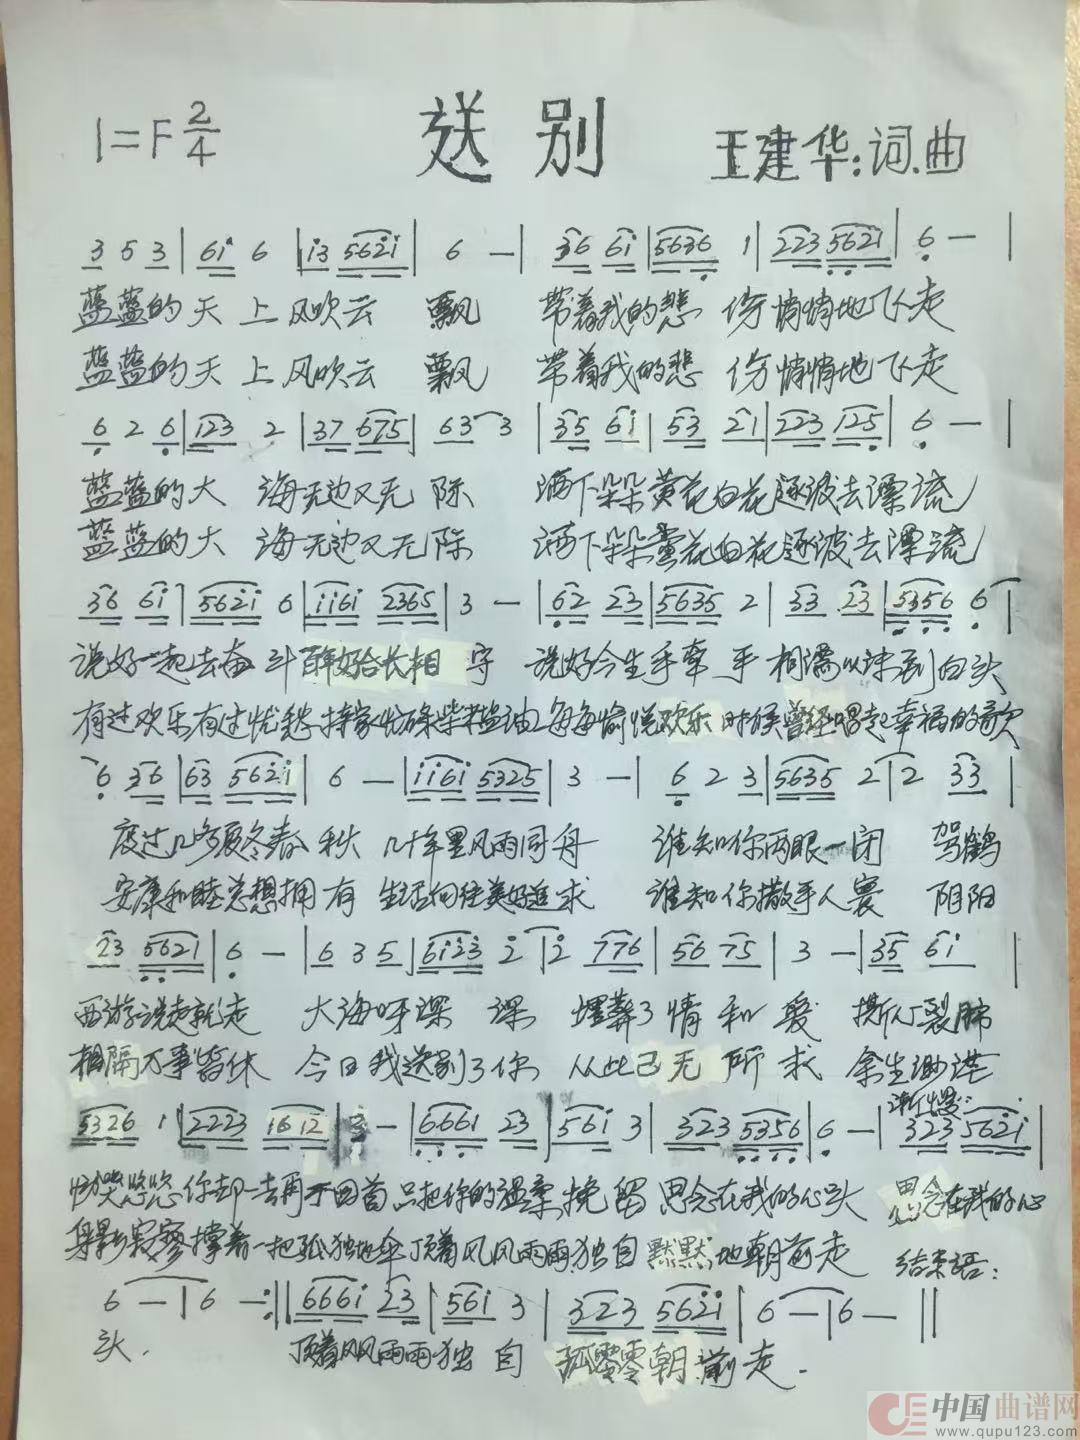 送别
1=F 2/4
王建华:词.曲
3 5 3 | 6 1 6 | 1 3 5 6 2 1 | 6 — | 3 6 6 1 | 5 6 3 6 1 | 2 2 3 5 6 2 1 | 6 — |
蓝蓝的天上风吹云 飘 带着我的悲 伤悄悄地飞走
蓝蓝的天上风吹云 飘 带着我的悲 伤悄悄地飞走
6 2 6 | 1 2 3 2 | 3 7 6 7 5 | 6 3 3 | 3 5 6 1 | 5 3 2 1 | 2 2 3 1 2 5 | 6 — |
蓝蓝的大 海无边又无 际 洒下朵朵黄花白花逐波去漂流
蓝蓝的大 海无边又无 际 洒下朵朵黄花白花逐波去漂流
3 6 6 1 | 5 6 2 1 6 | 1 1 6 1 2 3 6 5 | 3 — | 6 2 2 3 | 5 6 3 5 2 | 3 3 2 3 | 5 3 5 6 6 |
说好一起去奋 斗百年好合长相 守 说好今生手牵 手 相濡以沫到白头
有过欢乐有过忧愁 持家忙碌柴米盐油 每每愉悦欢乐 时候曾经唱起幸福的歌
6 3 6 | 6 3 5 6 2 1 | 6 — | 1 1 6 1 5 3 2 5 | 3 — | 6 2 3 | 5 6 3 5 2 | 2 3 3 |
度过几多夏冬春 秋 几十年里风雨同舟 谁知你两眼一闭 驾鹤
安康和睦总想拥 有 生活向往美好追 求 谁知你撒手人寰 阴阳
2 3 5 6 2 1 | 6 — | 6 3 5 | 6 1 2 3 2 | 2 7 7 6 | 5 6 7 5 | 3 — | 3 5 6 1 |
西游说走就走 大海呀深 深 埋葬了情 和 爱 撕心裂肺
相隔万事皆休 今日我送别了你 从此已无 所 求 余生渺茫
渐慢
5 3 2 6 1 | 2 2 2 3 1 6 1 2 | 3 — | 6 6 6 1 2 3 | 5 6 1 3 | 3 2 3 5 3 5 6 | 6 — | 3 2 3 5 6 2 1 |
恸哭悠悠 你却一去再不回首 只把你的温柔 挽 留 思念在我的心头 思念在我的心
身影寂寥 撑着一把孤独地伞 顶着风风雨雨独自 默默地朝前走 结束语:
6 — | 6 — :|| 6 6 6 1 2 3 | 5 6 1 3 | 3 2 3 5 6 2 1 | 6 — | 6 — ||
头. 顶着风风雨雨独 自 孤零零朝 前 走.
中国曲谱网
www.qupu123.com